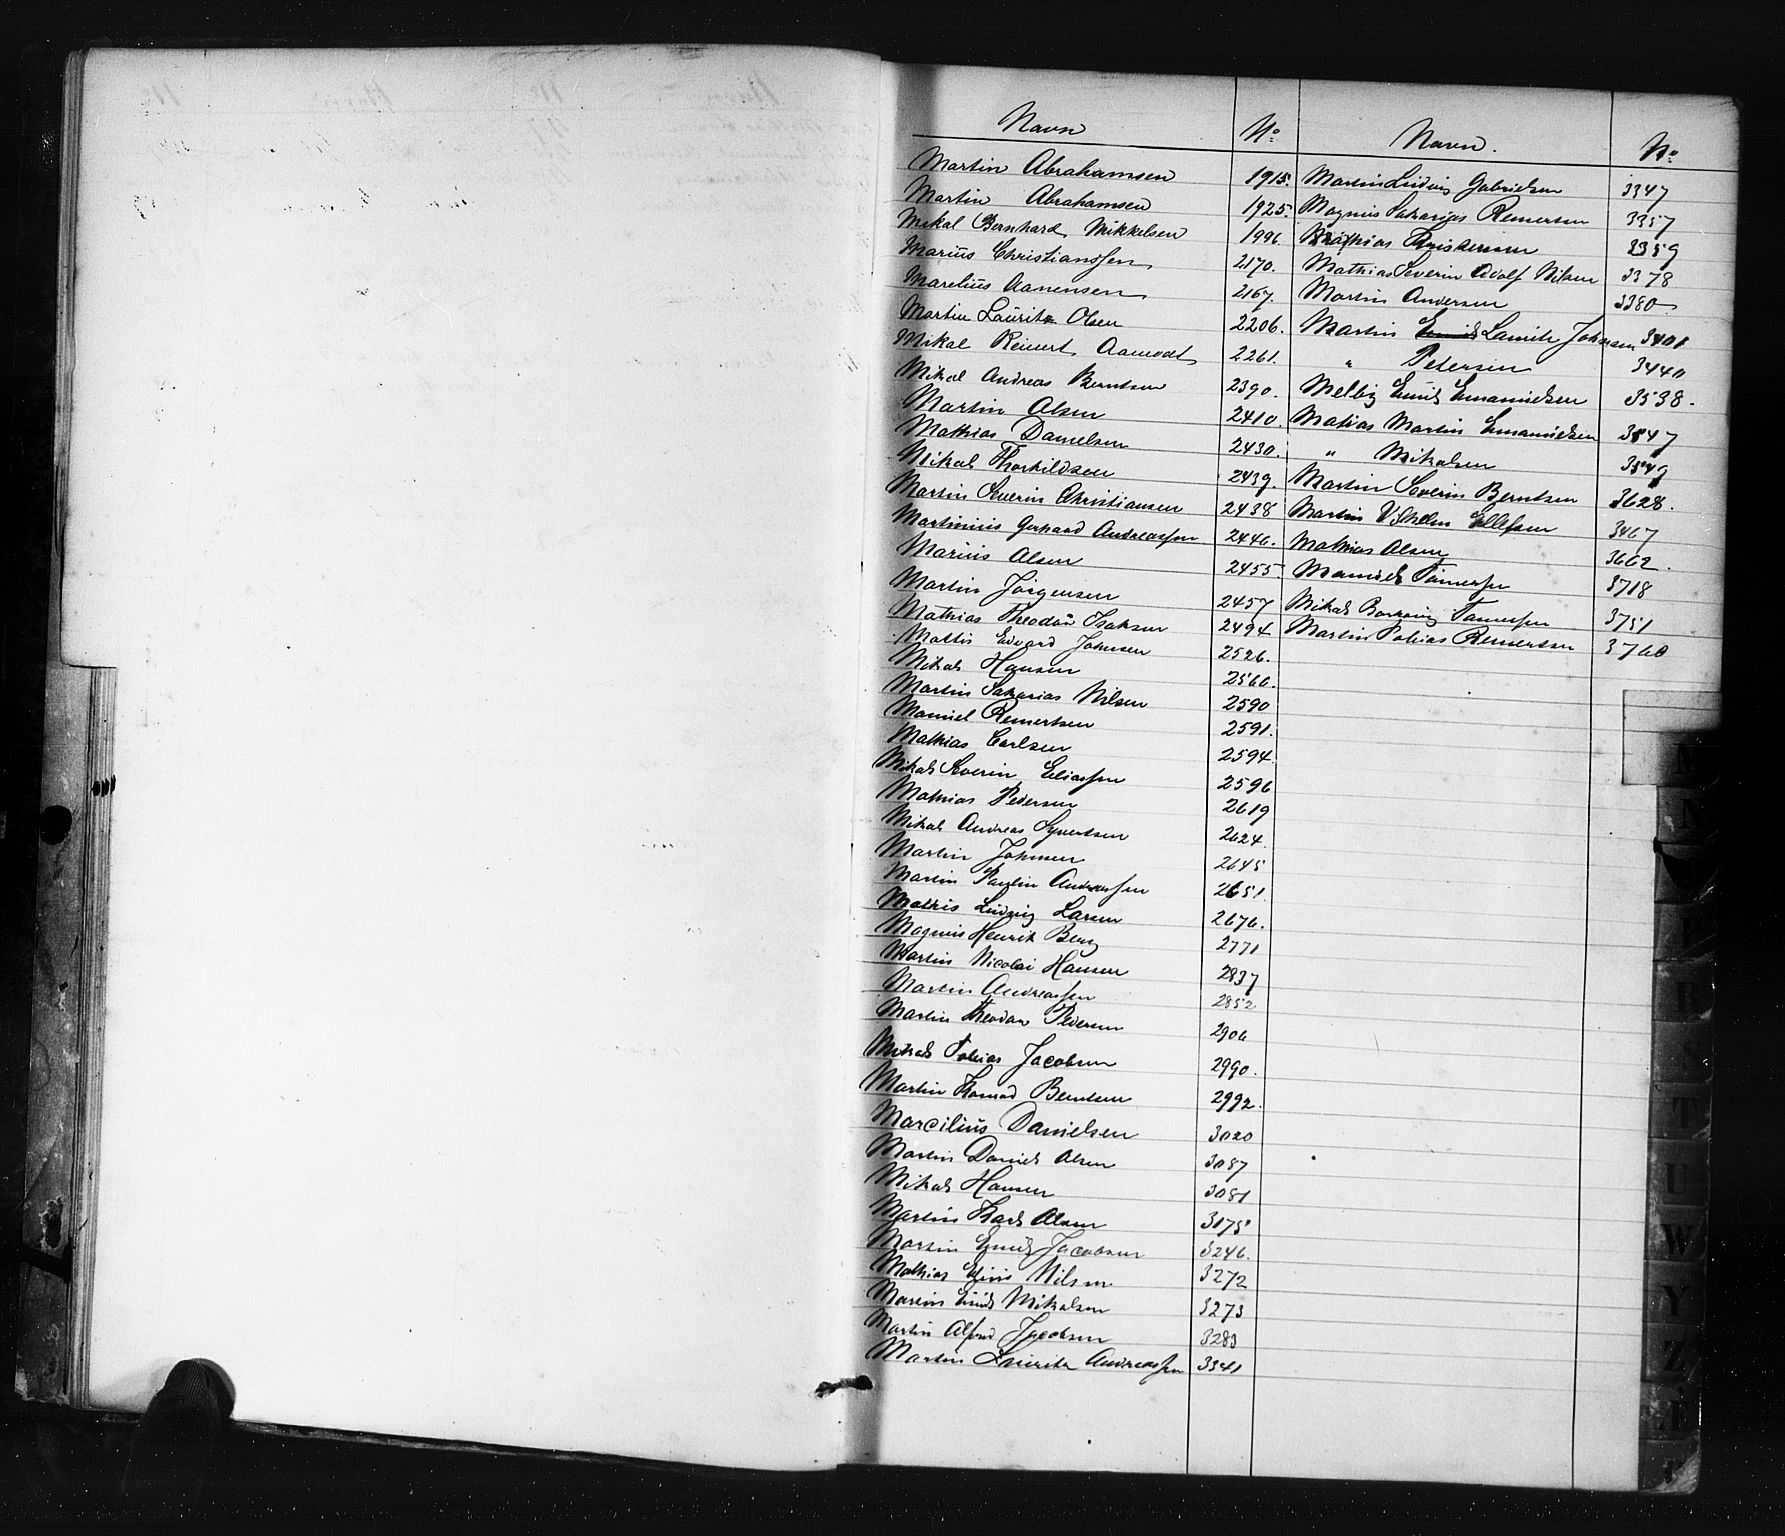 Navn No
Martin Abrahamsen 1915.
Martin Abrahamsen 1925.
Mikal Bernhard Mikkelsen 1996
Marius Christianssen 2170.
Marelius Aanensen 2167.
Martin Lauritz Olsen 2206.
Mikal Reinert Aamodt 2261.
Mikal Andreas Berntsen 2390.
Martin Olsen 2410
Mathias Danielsen 2430.
Mikal Thorkildsen 2439.
Martin Severin Christiansen 2438
Martinius Gerhard Andreassen 2446.
Marius Olsen 2455.
Martin Jörgensen 2457
Mathias Theodor Isaksen 2494
Mattis Edvard Johnsen 2526.
Mikal Hansen 2566.
Martin Sakarias Nilsen 2590
Manuel Reinertsen 2591.
Mathias Carlsen 2594
Mikal Severin Eliassen 2596
Mathias Pedersen 2619
Mikal Andreas Syvertsen 2624.
Martin Johnsen 2645
Martin Paulin Andreassen 2651
Mathis Ludvig Larsen 2676.
Magnus Henrik Berg 2771
Martin Nicolai Hansen 2837
Martin Andreassen 2852
Martin Theodor Pedersen 2906
Mikal Tobias Jacobsen 2990.
Martin Konrad Berntsen 2992.
Marcilius Danielsen 3020
Martin Daniel Olsen 3087
Mikal Hansen 3081
Martin Karl Olsen 3175
Martin Emil Jacobsen 3246.
Mathias Nilsen 3272
Martin Emil Mikalsen 3273
Martin Alfred Jacobsen 3283
Martin Lauritz Andreassen 3341
Navn. No
Martin Ludvig Gabrielsen 3347
Magnus Sakarias Reinertsen 3357
Mathias Kristensen 3359
Mathias Severin Adolf Nilsen 3378
Martin Andersen 3380
Martin Emil Lauritz Johansen 3401
" Petersen 3440
Melby Emil Emanuelsen 3538.
Matias Martin Emanuelsen 3547
" Mikalsen 3549
Martin Severin Berntsen 3628.
Martin Vilhelm Ellefsen 3467
Mathias Olsen 3662.
Manuel 3718
Mikal 3751
Martin Tobias Reinertsen 3760
M
N
P
R
S
T
U
W
Y
Z
Æ